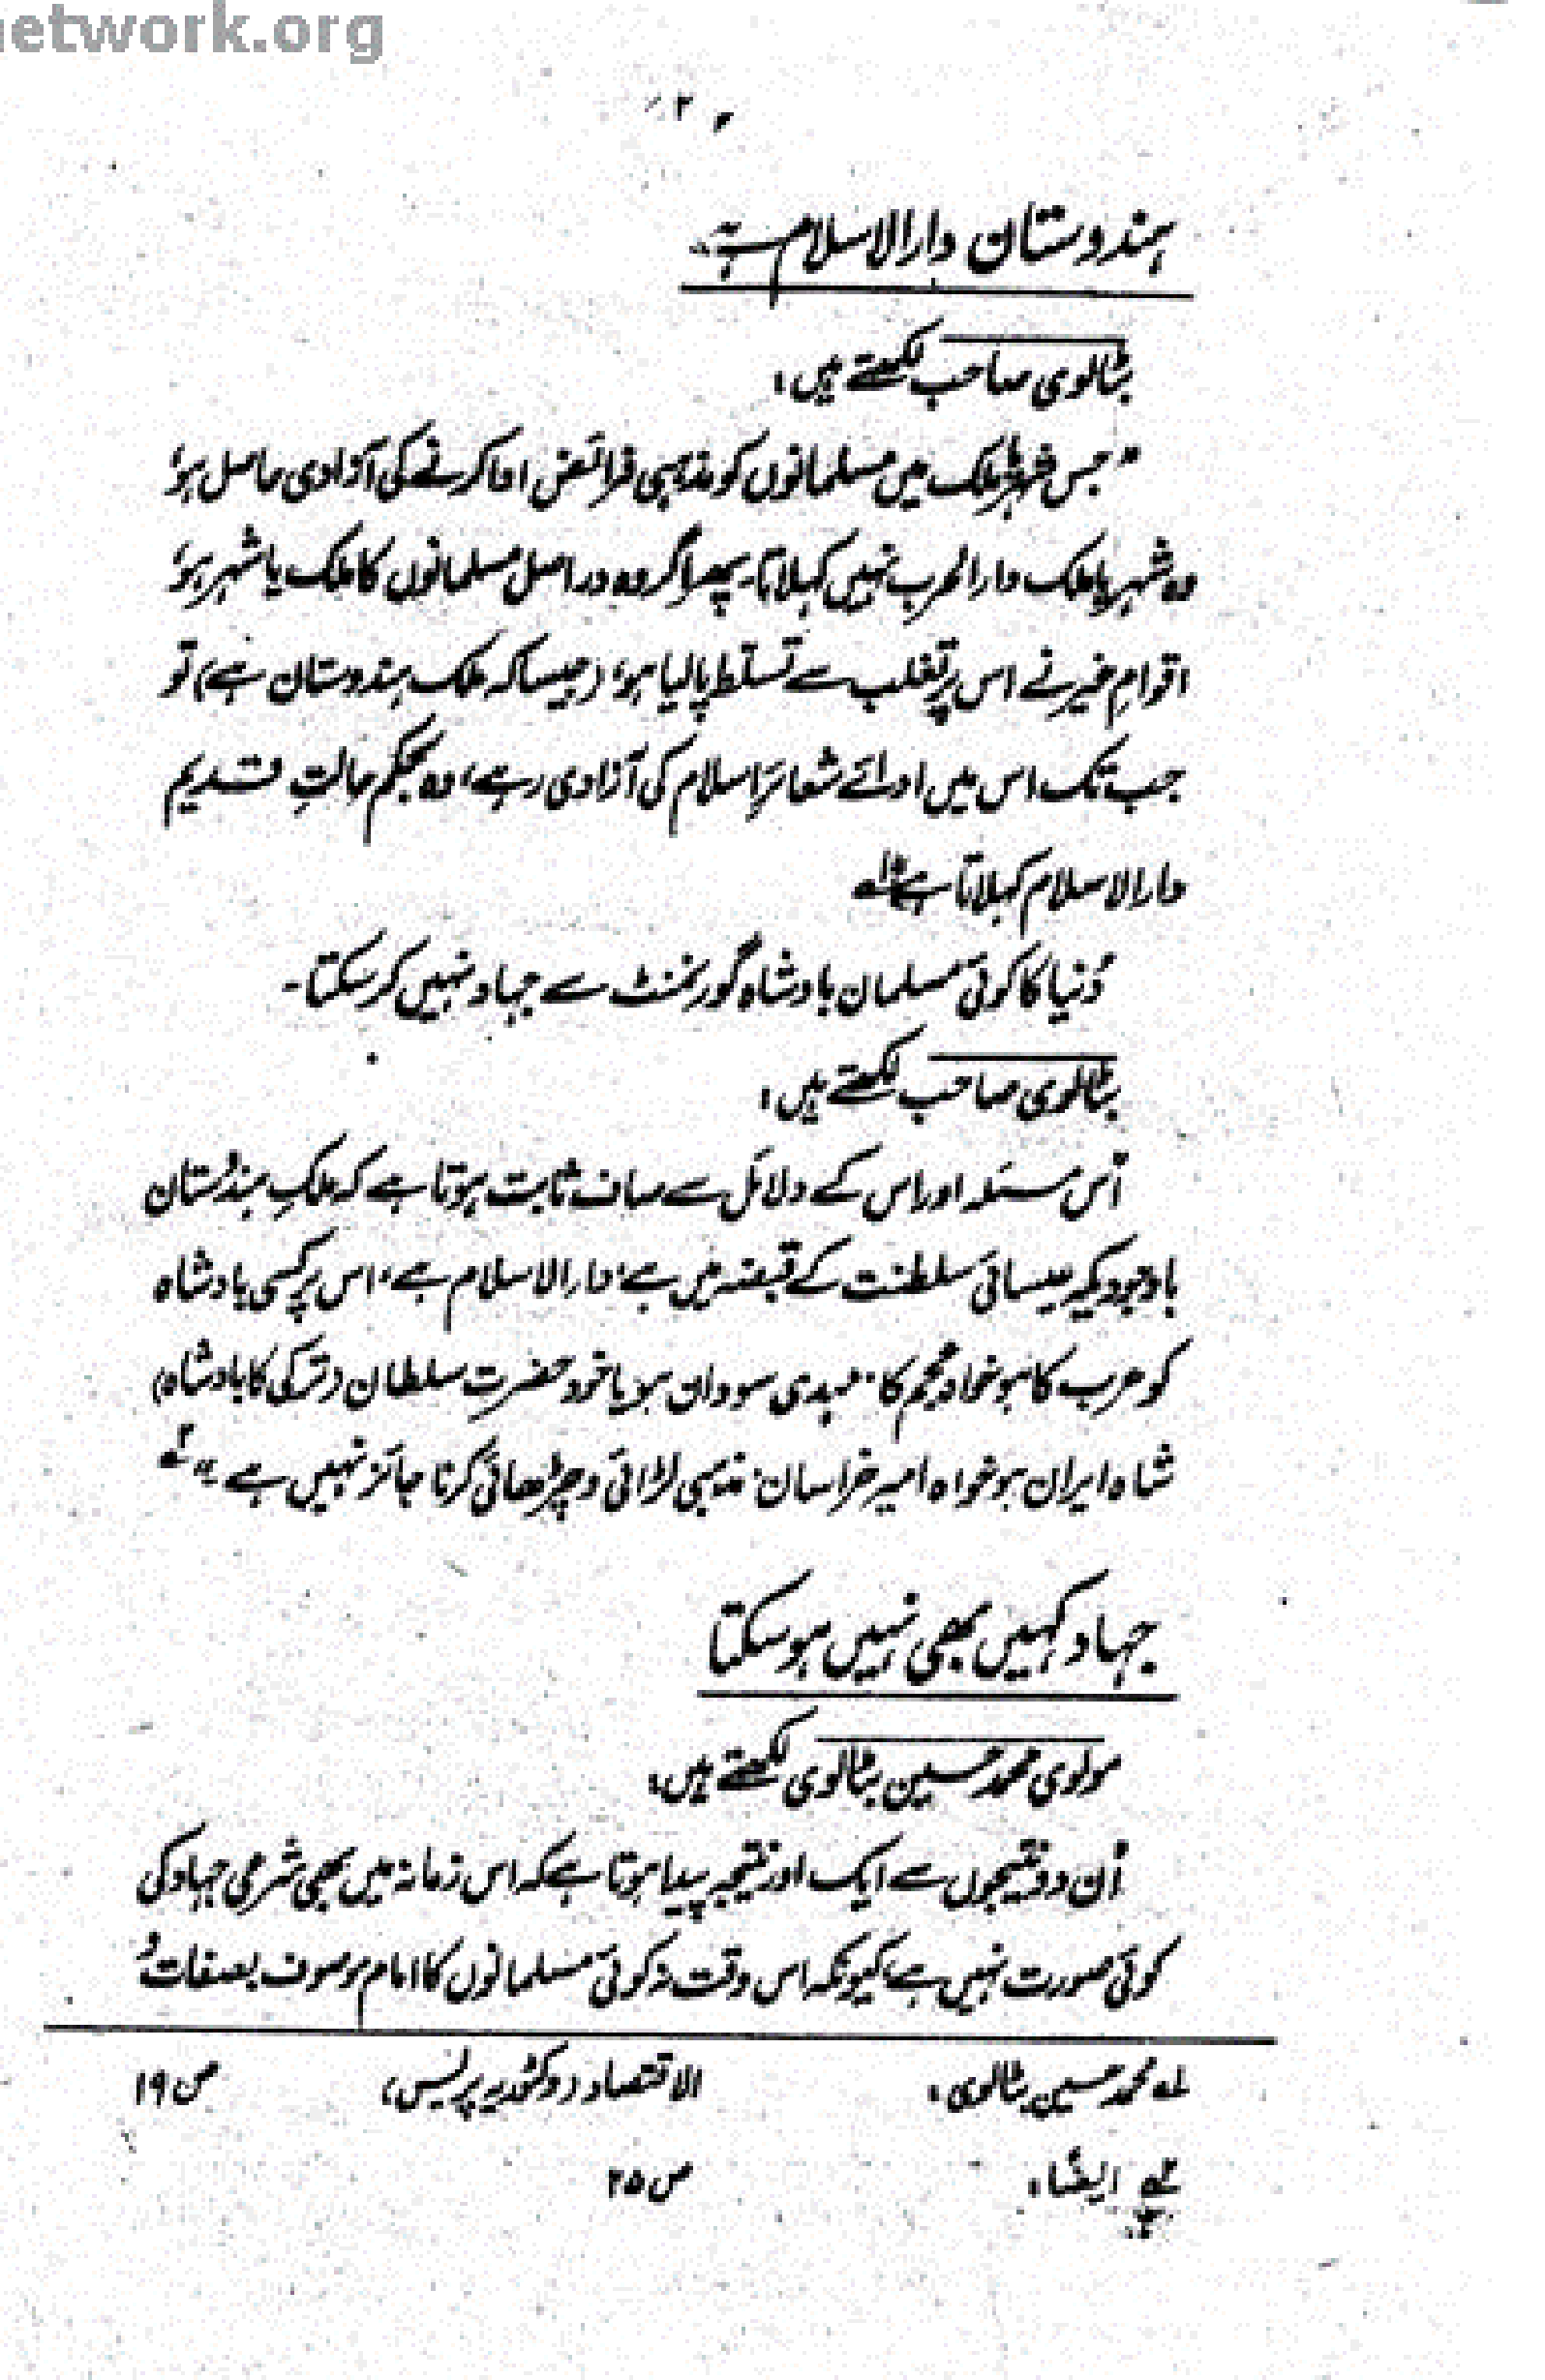 network.org
ہندوستان دارالاسلام ہے۔
بٹالوی صاحب لکھتے ہیں:
"جس شہر یا ملک میں مسلمانوں کو مذہبی فرائض ادا کرنے کی آزادی حاصل ہو،
وہ شہر یا ملک دارالحرب نہیں کہلاتا۔ پھر اگر وہ دراصل مسلمانوں کا ملک یا شہر ہو،
اقوامِ غیر نے اس پر تغلب سے تسلط پا لیا ہو، (جیسا کہ ملک ہندوستان ہے) تو
جب تک اس میں ادائے شعائر اسلام کی آزادی رہے، وہ بحکم حالتِ قدیم
دارالاسلام کہلاتا ہے"۱ے
دُنیا کا کوئی مسلمان بادشاہ گورنمنٹ سے جہاد نہیں کر سکتا۔
بٹالوی صاحب لکھتے ہیں:
"اس مسئلہ اور اس کے دلائل سے صاف ثابت ہوتا ہے کہ ملکِ ہندُستان
باوجودیکہ عیسائی سلطنت کے قبضہ میں ہے، دارالاسلام ہے، اس پر کسی بادشاہ
کو عرب کا ہو خواہ عجم کا، مہدی سوڈان ہو یا خود حضرت سلطان (ترکی کا بادشاہ)
شاہ ایران ہو خواہ امیر خراسان، مذہبی لڑائی و چڑھائی کرنا جائز نہیں ہے۔" ۲ے
جہاد کہیں بھی نہیں ہو سکتا
مولوی محمد حسین بٹالوی لکھتے ہیں:
"اُن دو نتیجوں سے ایک اور نتیجہ پیدا ہوتا ہے کہ اس زمانہ میں بھی شرعی جہاد کی
کوئی صورت نہیں ہے، کیونکہ اس وقت نہ کوئی مسلمانوں کا امام موصوف بصفات و
۱ے محمد حسین بٹالوی، الاقتصاد (وکٹوریہ پریس) ص ۱۹
۲ے ایضًا، ص ۲۵